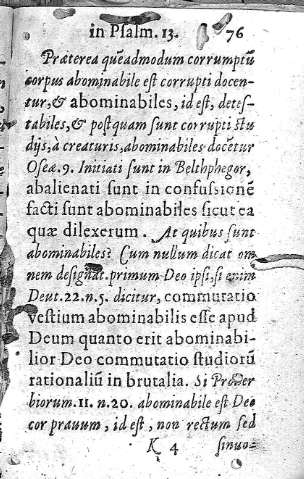 in Psalm. 13. 76
Præterea quẽadmodum corruptũ
corpus abominabile est corrupti docen-
tur, & abominabiles, id est, detes-
tabiles, & postquam sunt corrupti stu
dijs, a creaturis, abominabiles docẽtur
Oseæ. 9. Initiati sunt in Belthphegor,
abalienati sunt in confussionẽ
facti sunt abominabiles sicut ea
quæ dilexerum. At quibus sunt
abominabiles? Cum nullum dicat om
nem designat. primum Deo ipsi, si enim
Deut. 22. n. 5. dicitur, commutatio
vestium abominabilis esse apud
Deum quanto erit abominabi-
lior Deo commutatio studiorũ
rationaliũ in brutalia. Si Prover
biorum. 11. n. 20. abominabile est Deo
cor pravum, id est, non rectum sed
K 4 sinuo-